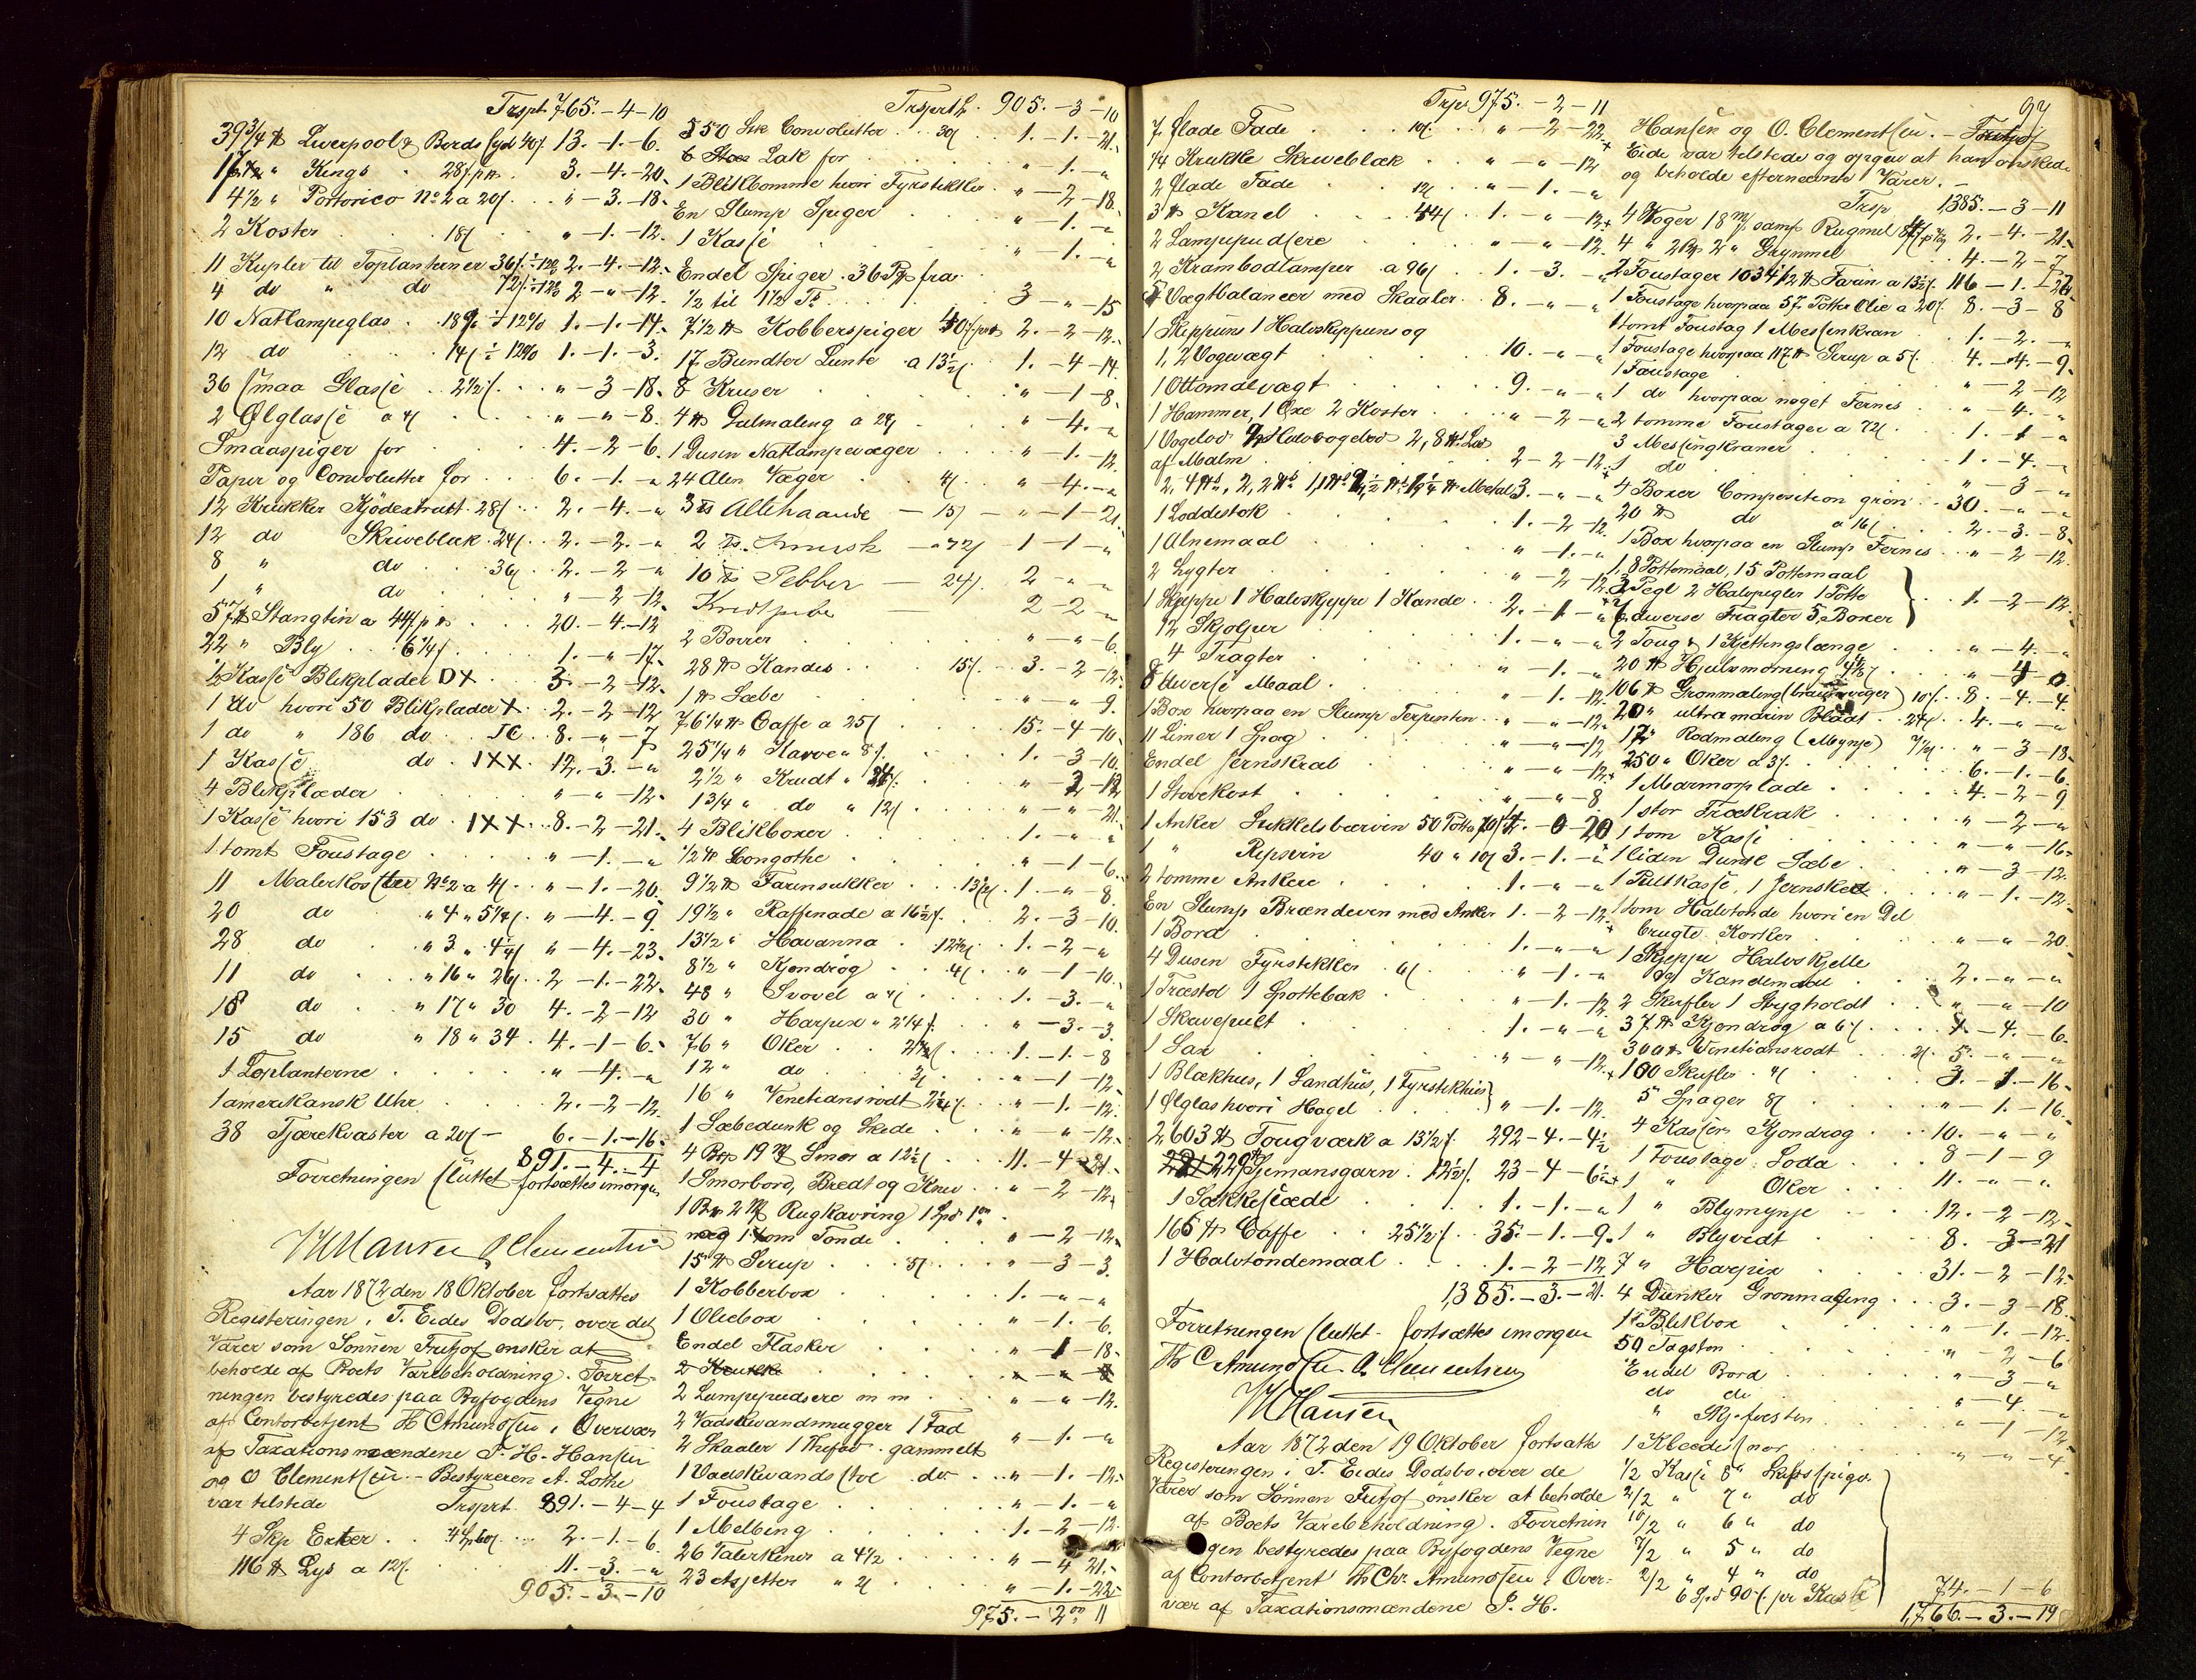 Trspt 765.-4-10
39 3/4 ℔ Liverpool & Bords Syd 40/ 13.-1-6.
" Kings . 28/ p ℔ . 3.-4.-20.
4 1/2 " Portorico No 2 a 20/ . . " -3.-18.
2 Koster . . 18/ . " -1.-12.
11 Kupler til Toplanterner 36/ ÷ 12% 2.-4.-12.
4 do " do 72/ ÷ 12% 2-"-12.
10 Natlampeglas . 18/ ÷ 12% 1.-1.-14.
12 do 14/ ÷ 12% 1.-1.-3.
36 smaa Glasse . . 2 1/2/ . . " -3-18.
2 Ølglasse a 4/ . . . " - " -8.
Smaaspiger for . . . 4.-2-6.
Papir og Convolutter for . . . 6.-1.-"
12 Krukker Kjödextract . 28/ . . 2.-4.-"
12 do Skriveblæk . 24/ . . 2.-2.-"
8 " do . 36/ . . 2.-2-"
1 " do . . " -2-12.
57 ℔ Stangtin a 44/ p ℔ . . 20.-4.-12
22 " Bly . . 6 1/4/ . . 1.-"-17.
1/2 Kasse Blikplader DX . . 3-2-12.
1 do hvori 50 Blikplader X . . 2.-2-12
1 do " 186 do . IC . 8.-"-7
1 Kasse do . IXX . 12.-3.-"
4 Blikplader . . . " - " -12.
1 Kasse hvori 153 do . IXX . . 8.-2-21.
1 tomt Foustage . . . " -1.-"
11 Malerkoster No 2 a 4/ . . " -1.-20.
20 do " 4 " 5 1/2/ . " -4.-9
28 do . " 3 " 4 1/4/ " -4.-23.
11 do . " 16 " 26/ . . 2-1.-22.
18 do . " 17 " 30 4.-2-12
15 do " 18 " 34 . 4.-1-6.
1 Toplanterne . . . . " -4.-"
1 amerikansk Uhr . . . 2.-2-12.
38 Tjærekvaster a 20/ - 6.-1.-16.
891.-4.-4
Forretningen sluttet fortsættes imorgen
J H Hansen O Clementsen
Aar 1872 den 18 Oktober fortsattes
Registeringen i T. Eides Dodsbo, over de
Varer som Sönnen Fritjof ønsker at
beholde af Boets Varebeholdning. Forret-
ningen bestyredes paa Byfogdens Vegne
af Contorbetjent Th C Amundsen i Overvær
af Taxationsmændene J. H. Hansen
og O Clementsen. - Bestyreren A. Lothe
var tilstede Trsprt. 891.-4-4
4 Skp Erter . . 2.-1-6.
116 ℔ Lys a 12/ . . 11.-3.-"
905.-3.-10
Trsprt . 905.-3-10
550 Stk Convolutter . . 30/ . . 1.-1.-21.
6 Lak for . . . . " -1.-"
1 Blikbomme hvori Fyrstikker . " -2-18.
En Slump Spiger . . . " -1.-"
1 Kasse . . . . " -1.-"
Endel Spiger . 36 fra
1/2 til 1 1/2 T. . . . 3-"-15
7 1/2 ℔ Kobberspiger 40/ . . 2.-2-12.
17 Bundter Lunte a 13 1/2/ . . 1.-4-14.
8 Kruser . . . " -1-8.
4 ℔ Gulmaling a 24/ . . " -4.-"
1 Dusin Natlampevæger . . " -1.-12.
24 Alen Væger . 4/ . " -4.-"
3 ℔ Allehaande - 15/ - " -1-21.
2 ℔ - " 72/ 1-1-"
10 ℔ Pebber - 24/ . 2-"-"
Kridtpiber 2-2-"
2 Borrer " - " -6.
28 ℔ Kandis . . . 15/ . . 3.-2-12.
1 ℔ Sæbe . . . " - " 9.
76 1/4 ℔ Caffe a 25/ . . . 15.-4-10.
25 1/4 " Karve a 8/ . . 1.-3-10.
2 1/2 " Krudt " 24/ . . " -2-12
1 3/4 " do " 12/ . . " - " -21.
4 Blikboxer . . . 1.-"-"
1/2 ℔ Longothe . . . " -1-6.
9 1/2 ℔ Farinsukker . . . 13 1/2/ . 1.-"-8.
19 1/2 " Raffinade a 16 1/2/ . . 2.-3-10.
13 1/2 " Havanna . 12 1/2/ . 1.-2-"
8 1/2 " Kjöndrög . . 4/ . " -1-10.
48 " Svovel a 4/ . . . 1.-3.-"
30 " Harpix " 2 1/4/ . . " -3.-3.
76 " Oker . . 2 1/4/ . . . 1.-1.-8
12 " do . . 3/ . . " -1-12.
16 " Venetiansrödt 2 1/4/ . . " -1.-12.
1 Sæbedunk og Skede . . " - " -12.
4 19 Smör a 12 1/2/ . . 11.-4-21.
1 Smorbord, Bredt og Kniv . . " -2-12.
1 2 Rugkavring 1
med 1 tom Tonde . . . " -2-12.
15 ℔ Sirup . . . 5/ . . " -3-3.
1 Kobberbox . . . 1.-"-"
1 Oliebox . . . " -1.-6.
Endel Flasker . . . " -1-18.
2 Krukke
2 Lampepudsere m m . . . " - " -12.
2 Vadskevandsmugger 1 Fad
2 Skaaler 1 gammelt " -1.-"
1 Vadskevandsstol do . . " -1.-12.
1 Foustage . . . " -1.-"
1 Melbing . . . 1.-2-12.
26 Talerkener a 4 1/2 . . . " -4 21.
23 Asjetter " 2/ . . " -1.-22.
975.-2-11
94
Trsp. 975.-2-11
7 flade Fade . . . 10/ . . " -2-22.
14 Krukke Skriveblæk . . " - " -12
2 flade Fade . . 12/ . . " -1.-"
3 ℔ Kanel . . . 44/ . . 1.-"-12.
2 Lampepudsere . . . " - " -12.
2 Krambodlamper a 96/ . . 1.-3.-"
5 Vægtbalancer med Skaaler . . 8.-"-"
1 Skippuns 1 Halvskippuns og
1, 2 Vogvægt . . . 10.-"-"
1 Ottomalvægt . . . 9.-"-"
1 Hammer, 1 Oxe 2 Koster . . " -2-"
1 Vogelod Halvvogelod 2, 8 ℔ Lod
af Malm . . . 2-2-12.
2, 4 ℔, 2, 2 ℔ 1, 1 ℔ Metal 3.-"-"
1 Loddestok . . . 1.-2-12.
1 Alnemaal . . . " -1.-"
2 Lygter . . . " -2-12.
1 Skjeppe 1 Halvskjeppe 1 Kande . . 2.-1-"
12 Skjolper . . . 1.-"-"
4 Tragter . . . " -1.-"
8 diverse Maal . . . " -1.-12.
1 Box hvorpaa en Slump Terpentin . . " - " -12.
11 Limer 1 Spog . . . " - " -12
Endel Jernskrab . . . " - " -12.
1 Stovekost . . . " - " -8
1 Anker Sukkelsbærvin 50 Potter 10/ 4.-0-20
1 " Ripsvin 40 " 10/ 3.-1.-"
2 tomme Ankere . . . 1.-"-"
En Slump Brændevin med Anker 1.-2-12.
1 Bord . . . 1.-"-"
4 Dusin Fyrstikker . 6/ . . " -1.-"
1 Træstol 1 Spottebak . . " -1.-12
1 Skrivepult . . . 1.-"-"
1 Sax . . . " - " -12.
1 Blækhus, 1 Sandhus, 1 Fyrstikhus
1 Ølglas hvori Hagel . . } " -1.-12.
2,603 ℔ Tougværk a 13 1/2/ . 292-4.-4 1/2
229 ℔ Sjömansgarn . 12 1/2/ . 23-4-6 1/2
1 Sækkesiæde . . . 1.-1.-"
165 ℔ Caffe . . 25 1/2/ . . 35.-1.-9.
1 Halvtondemaal . . . 1.-2-12
1385.-3.-21.
Forretningen sluttet - fortsættes imorgen
Th C Amundsen O. Clementsen
J H Hansen
Aar 1872 den 19 Oktober fortsatte
Registeringen i T. Eides Dodsbo, over de
Varer som Sönnen Fritjof önsker at beholde
af Boets Varebeholdning. Forretnin
gen bestyredes paa Byfogdens Vegne
af Contorbetjent Th Chr. Amundsen i Over-
vær af Taxationsmændene J. H.
Hansen og O. Clementsen. - Fritjof
Eide var tilstede og opgav at han önskede
og beholde efternævnte Varer. -
Trsp 1,385.-3-11
4 Voger 18 samf Rugmel 84/ 2.-4.-21.
4 " 2 2 " Grynmel . . 4.-2-7
2 Foustager 1034 1/2 ℔ Farin a 13 1/2/ . 116-1.-
1 Foustage hvorpaa 57 Potter Olie a 20/ . 8.-3-8
1 tomt Foustag 1 Messenkran . . 1.-2.-"
1 Foustage hvorpaa 117 ℔ Sirup a 5/ . . 4.-4.-9.
1 Foustage . . . " -2-12
1 do hvorpaa noget Fernis . . " -4.-"
2 tomme Foustager a 72/ . . 1.-1-"
3 Messingkraner . . . 1.-4.-"
1 do . . . " -3-"
4 Boxer Composition grön . . 30.-"-"
20 ℔ do a 16/ . . 2.-3.-8.
1 Box hvorpaa en Slump Fernis . . " -2-12.
1, 8 Pottemaal, 1 5 Pottemaal
3 Pegl 2 Halvpegler 1 Potte
6 diverse Tragter 5 Boxer } . . 1.-2-12.
2 Toug & 1 Kjettinglænge . . " -4.-"
20 ℔ Hjulsmorning . . " -4-0.
106 ℔ Gronmaling ( ) 10/ . . 8.-4.-4
20 " ultramarin Blaat . . 24/ . . 4.-"-"
17 " Rödmaling (Mynje) . . " -3-18.
250 " Oker a 3/ . . . 6.-1.-6.
1 Marmorplade . . . 4.-2-9
1 stor Trækrak . . . " -2-"
1 tom Kasse . . . " - " -16.
1 liden Dunk Sæbe . . . " -3-12.
1 Pultkasse, 1 Jernsked . . " -1.-12.
1 tom Halvtonde hvori en Del
brugte Korker . . . " - " -20.
1 Skjeppe Halvskjelle
og Kandemaal . . . 2.-"-"
2 Skufler 1 Stygholdt . . " - " -10
37 ℔ Kjöndrög a 6/ . . . 1.-4.-6.
300 ℔ Venetiansrödt . . 2/ . 5.-"-"
100 Skufler . 4/ . . . 3.-1.-16.
5 Spager 8/ . . . " -1.-16.
4 Kasser Kjöndrog . . . 10.-"-"
1 Foustage Soda . . . 8-1-9
1 " Oker . . 11.-"-"
1 " Blymynje . . 12.-2-12.
1 " Blyvidt . . . 8.-3-21
7 " Harpix . . . 31.-2-12.
4 Dunker Gronmaling . . . 3.-3-18.
1 Blikbox . . . " -1.-12.
50 Tagsten . . . " -2-6
Endel Bord . . . " -3-"
do do . . . " -4.-"
" . . . " -1-12
1 Klædesnor . . . " - " -4.
1/2 Kasse 8" Skibsspiger
2/2 " 7 " do
10/2 " 6 " do
7/2 " 5 " do
2/2 " 4 " do
6 Spd 90/ pr Kasse } 74.-1-6
1,766.-3.-19